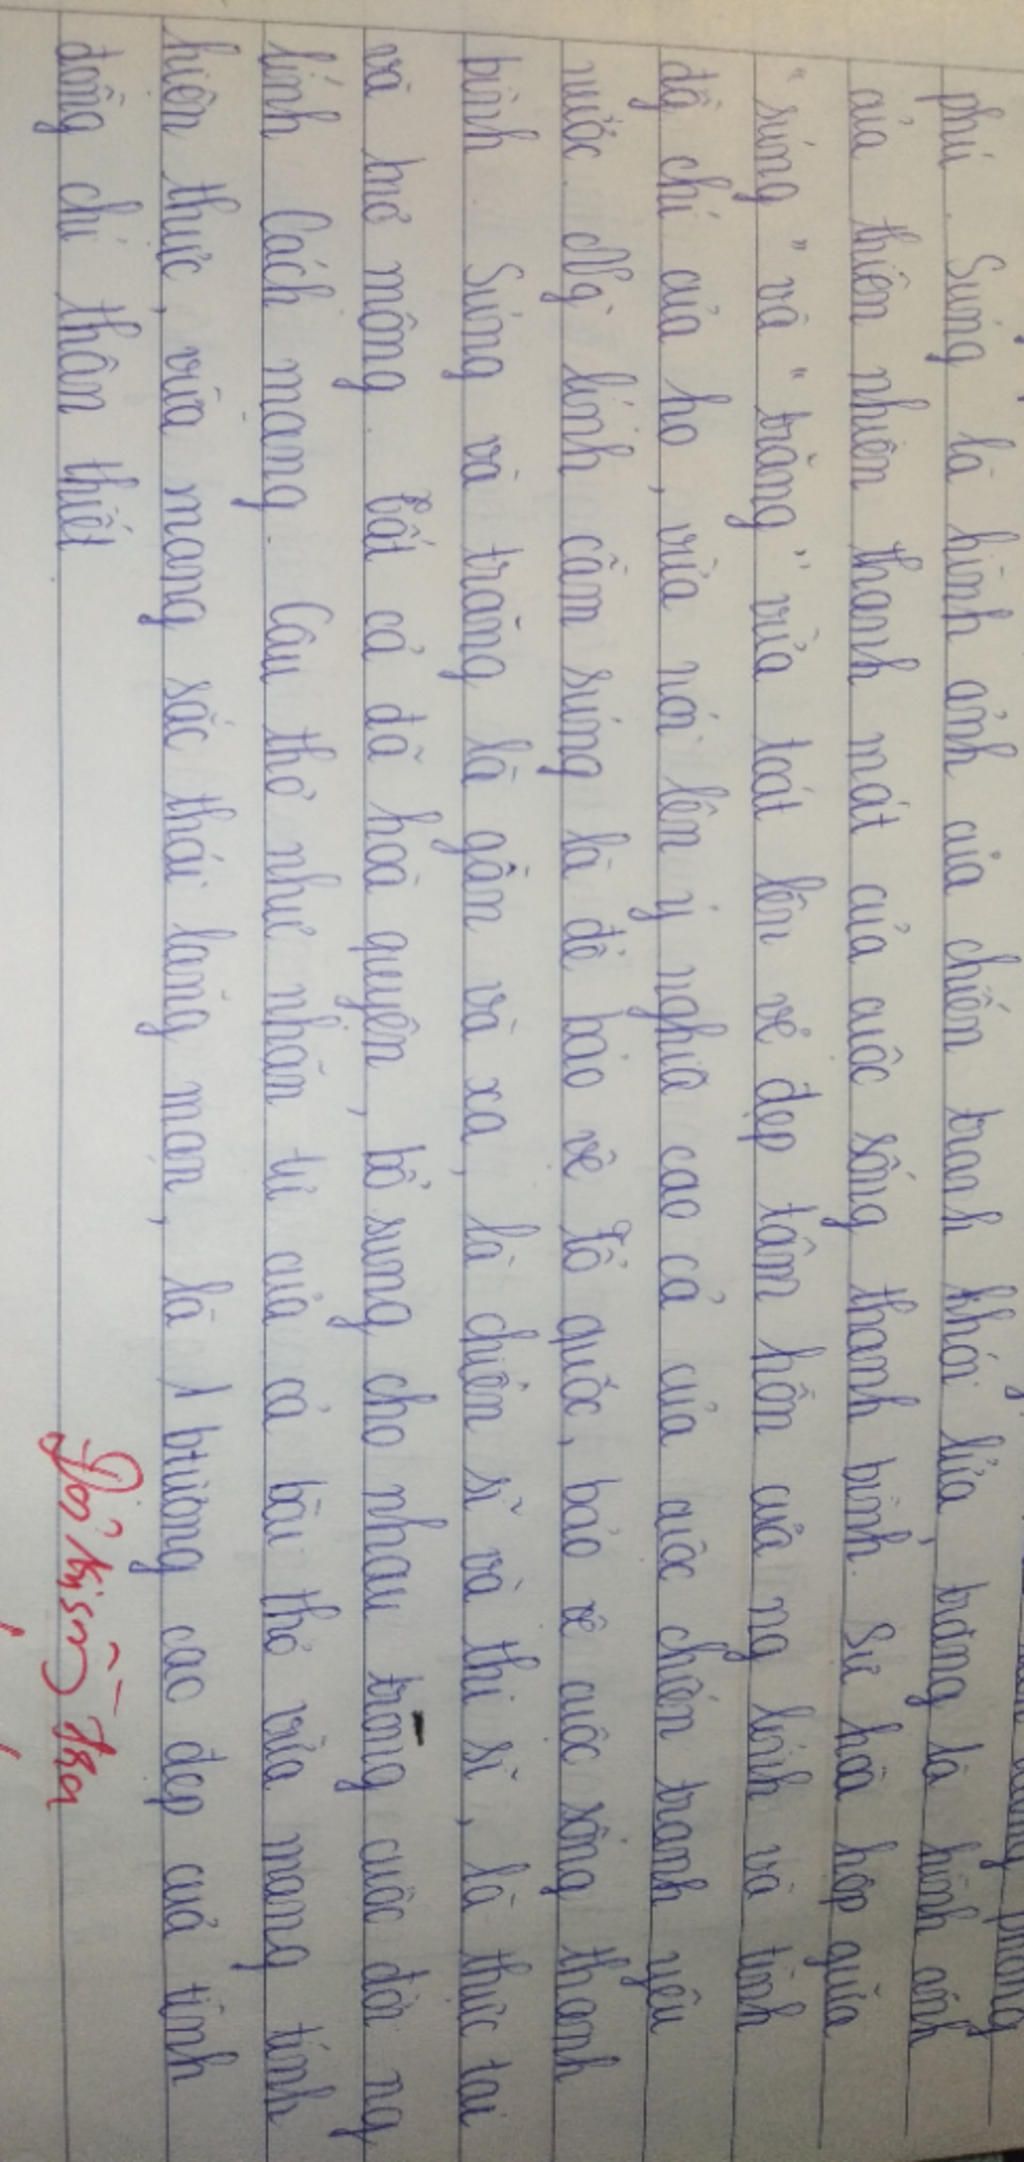 phong
phú. Súng là hình ảnh của chiến tranh khói lửa, trăng là hình ảnh
của thiên nhiên thanh mát của cuộc sống thanh bình. Sự hoà hợp giữa
"súng" và "trăng" vừa toát lên vẻ đẹp tâm hồn của ng lính và tình
đ/c chí của họ, vừa nói lên ý nghĩa cao cả của cuộc chiến tranh yêu
nước. Ng lính cầm súng là để bảo vệ Tổ quốc, bảo vệ cuộc sống thanh
bình. Súng và trăng là gần và xa, là chiến sĩ và thi sĩ, là thực tại
và mơ mộng. Tất cả đã hoà quyện, bổ sung cho nhau trong cuộc đời ng
lính Cách mạng. Câu thơ như nhãn tự của cả bài thơ vừa mang tính
hiện thực, vừa mang sắc thái lãng mạn, là 1 btượng cao đẹp của tình
đồng chí thân thiết